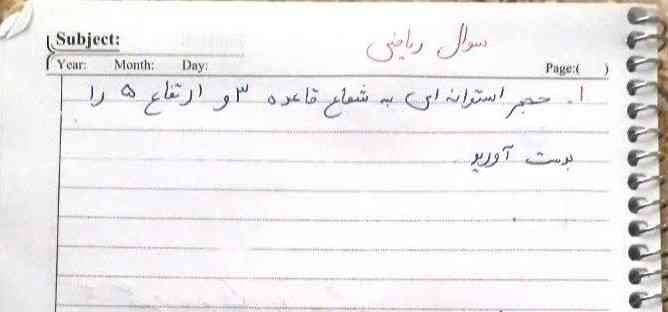 Subject:
سوال ریاضی
Year: Month: Day: Page:( )
۱. حجم استوانه ای به شعاع قاعده ۳ و ارتفاع ۵ را
بدست آورید